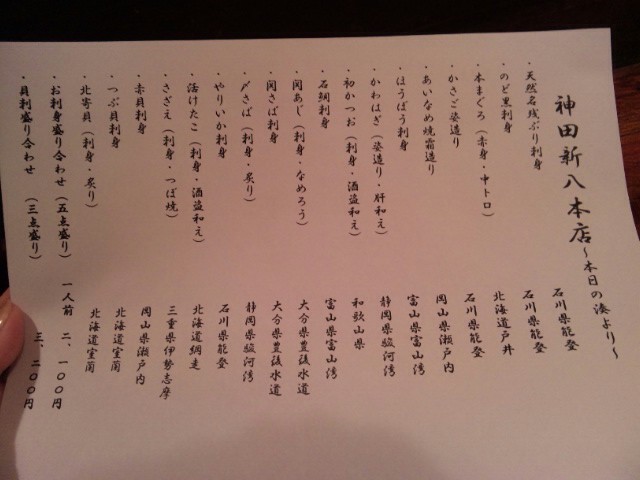 神田新八本店～本日の湊より～
・天然名残ぶり刺身　石川県能登
・のど黒刺身　石川県能登
・本まぐろ（赤身・中トロ）　北海道戸井
・かさご姿造り　石川県能登
・あいなめ焼霜造り　岡山県瀬戸内
・ほうぼう刺身　富山県富山湾
・かわはぎ（姿造り・肝和え）　静岡県駿河湾
・初かつお（刺身・酒盗和え）　和歌山県
・石鯛刺身　富山県富山湾
・関あじ（刺身・なめろう）　大分県豊後水道
・関さば刺身　大分県豊後水道
・〆さば（刺身・炙り）　静岡県駿河湾
・やりいか刺身　石川県能登
・活けたこ（刺身・酒盗和え）　北海道網走
・さざえ（刺身・つぼ焼）　三重県伊勢志摩
・赤貝刺身　岡山県瀬戸内
・つぶ貝刺身　北海道室蘭
・北寄貝（刺身・炙り）　北海道室蘭
・お刺身盛り合わせ（五点盛り）　一人前　二、一〇〇円
・貝刺盛り合わせ　（三点盛り）　三、二〇〇円